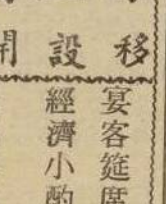 移設開
宴客筵席
經濟小酌